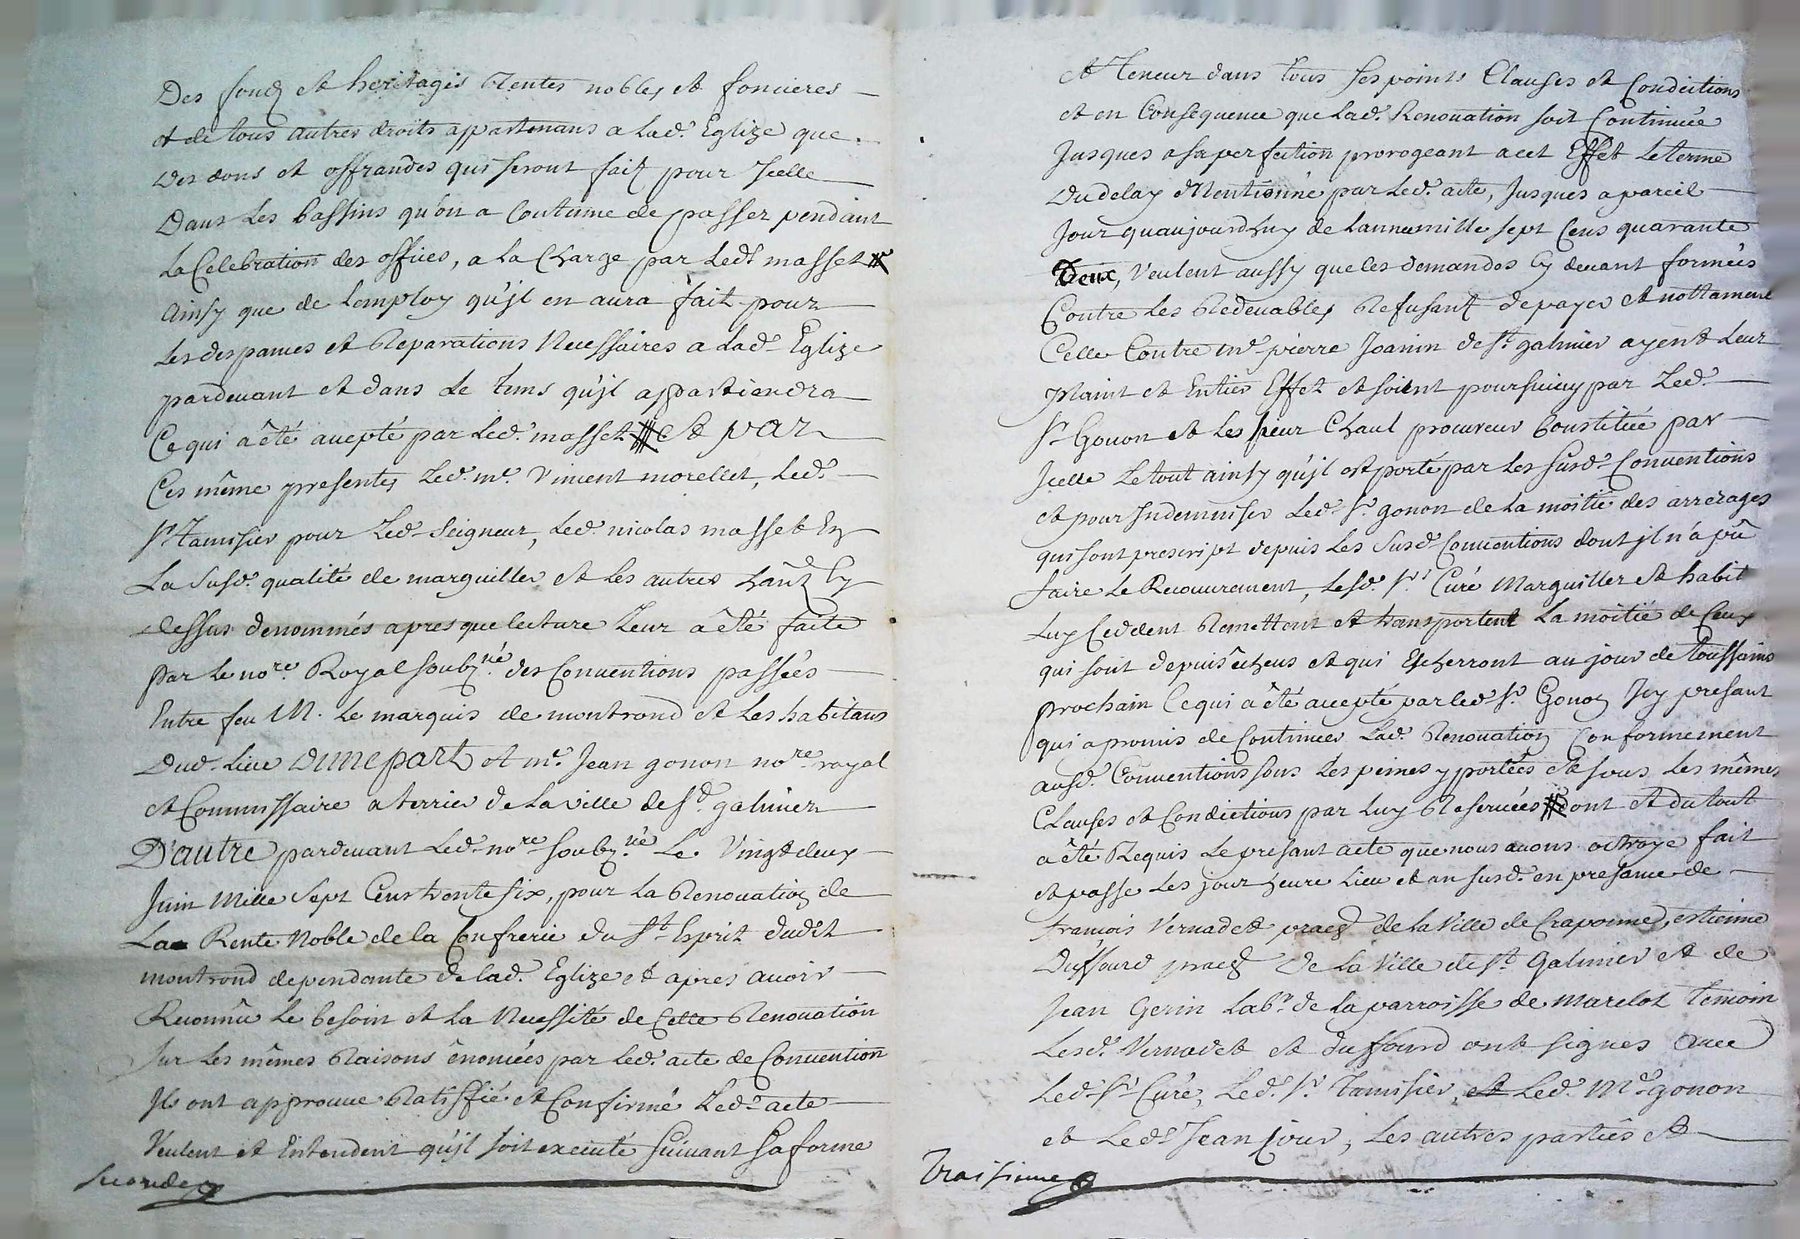 Des fondz et heritages Rentes nobles et foncieres
et de tous autres droits appartenans a lade. Eglize que
des dons et offrandes qui seront faitz pour Icelle
Dans Les bassins qu'on a Coutume de passer pendant
La Celebration des offices, a La Charge par Ledt. masset
Ainsy que de Lemploy qu'jl en aura fait pour
Les despances et Reparations Necessaires a Lade. Eglize
pardevant et dans Le tems qu'jl appartiendra
Ce qui a êté accepté par Led. masset Et par
Ces même presentes Led. me. Vincent morellet, Led.
Sr. Tamisier pour Led. Seigneur, Led. nicolas masset En
La Susd. qualité de marguiller et Les autres hânz Cy
dessus denommés apres que lecture Leur a êté faite
par Le nore. Royal soubzné. des Conventions passées
Entre feu M. Le marquis de montrond et Les habitans
Dud. Lieu D'une part et me. Jean gonon nore. royal
et Commissaire a terrier de La ville de St. galmier
D'autre pardevant Led. nore. soubzné Le Vingt deux
Juin Mille Sept Cens trente six, pour La Renovation de
La Rente Noble de la Confrerie du St. Esprit dudit
montrond dependante de lad. Eglize et apres avoir
Reconnûe Le besoin et La Necessité de Cette Renovation
sur Les mêmes Raisons ênoncées par Led. acte de Convention
Ils ont approuvé Ratiffié et Confirmé Led. acte
Veulent et Entendent qu'jl soit executé Suivant Sa forme
Seconde
et Teneur dans tous ses points Clauses et Condictions
et en Consequence que Lad. Renovation soit Continuée
Jusques a sa perfection prorogeant a cet Effet Le terme
Du delay Mentionné par Led. acte, Jusques a pareil
Jour quaujourdhuy de Lannee mille sept Cens quarante
Deux, Veulent aussy que les demandes Cy devant formées
Contre Les Redevables Refusant de payer et nottament
Celle Contre me. pierre Joanin de St. galmier ayent Leur
plaint et Entier Effet et soient poursuivy par Led.
Sr. Gonon et Les sieur Chaul procureur Constitué par
Icelle Le tout ainsy qu'jl est porté par Les susd. Conventions
et pour Indemniser Led. Sr. gonon de La moitié des arrerages
qui sont prescript depuis Les Susd. Conventions dont jl n'a pû
faire Le Recouvrement, Lesd. Srs. Curé Marguiller et habit
Luy Ceddent Remettent et transportent La moitié de Ceux
qui sont depuis êcheus et qui Escherront au jour de toussains
prochain Ce qui a êté accepté par led. Sr. Gonon Icy presant
qui a promis de Continuer Lad. Renovation Conformement
ausd. Conventions sous Les peines y portées et sous Les mêmes
Clauses et Condictions par Luy Reservées dont et du tout
a êté Requis Le presant acte que nous avons octroyé fait
et passé Les jour heure Lieu et an susd. en presance de
francois Vernadet de La Ville de Craponne, estienne
Duffourd de La Ville de St. Galmier et de
Jean Gerin Labr. de La parroisse de Marclot temoin
Lesd. Vernadet et duffourd ont signes avec
Led. Sr. Curé, Led. Sr. Tamisier, et Led. Me. gonon
et Led. Jean, Les autres parties et
Troisieme